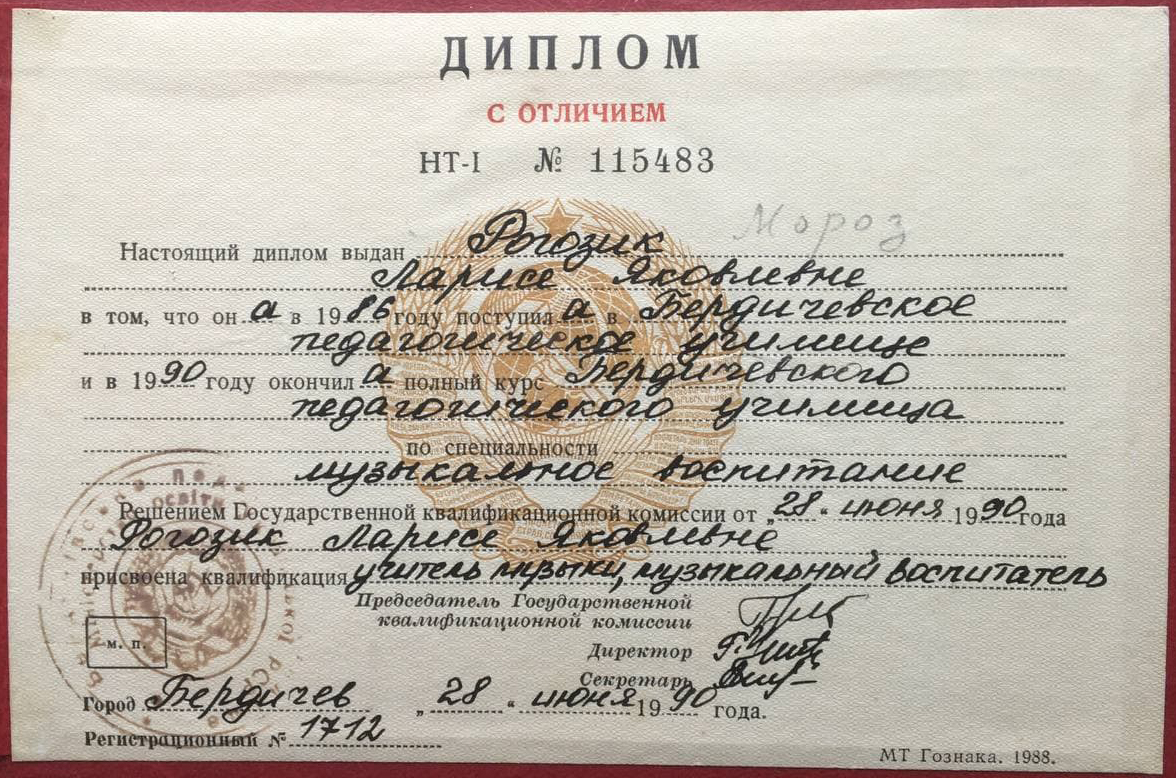 ДИПЛОМ
С ОТЛИЧИЕМ
НТ-I № 115483
Мороз
Настоящий диплом выдан Рогозик
Ларисе Яковлевне
в том, что он а в 1986 году поступил а в Бердичевское
педагогическое училище
и в 1990 году окончил а полный курс Бердичевского
педагогического училища
по специальности
музыкальное воспитание
Решением Государственной квалификационной комиссии от „28“ июня 1990 года
Рогозик Ларисе Яковлевне
присвоена квалификация учитель музыки, музыкальный воспитатель
Председатель Государственной
квалификационной комиссии
Директор
Секретарь
м. п.
Город Бердичев „28“ июня 1990 года.
Регистрационный № 1712
МТ Гознака. 1988.